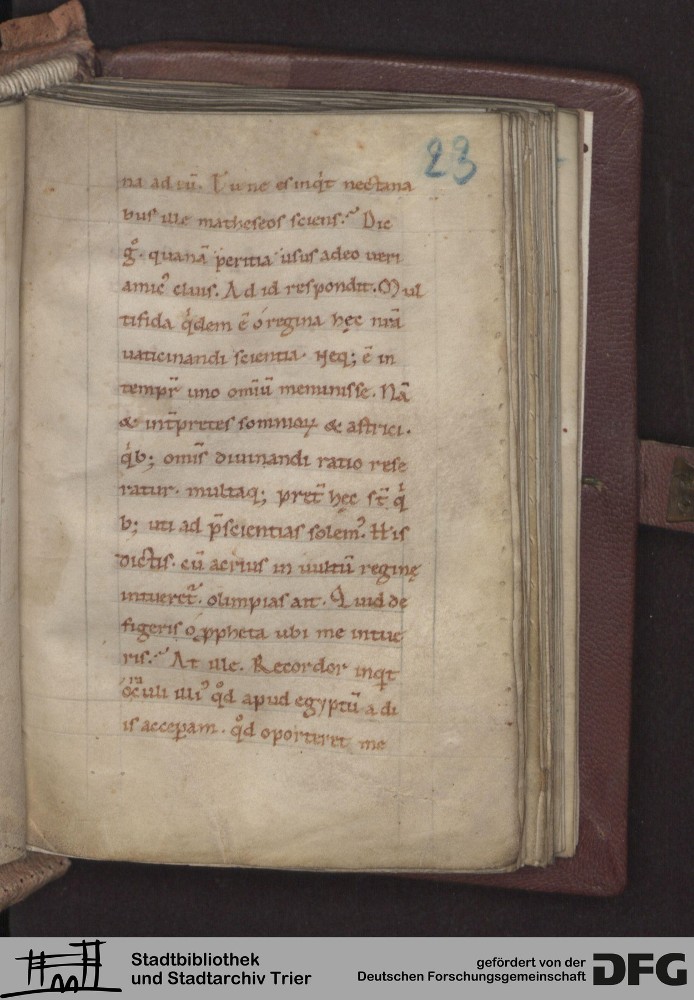 23
na ad eū. Tu ne es inqt nectana
bus ille matheseos sciens. Dic
g̊. quanā peritia usus adeo veri
amic᷒ cluis. Ad id respondit. Mul
tifida q̇dem ē o regina hęc nr̄a
vaticinandi scientia. Neq; ē in
tempr̄ uno omiū meminisse. Nā
& int̄pretes somnioꝝ & astrici.
q̇b; omīs divinandi ratio rese
ratur. multaq; pret̄ hęc st̄ q̇
b; uti ad p̄scientias solem᷒. His
dictis. cū acrius in vultū reginę
intueret᷑. olimpias ait. Quid de
figeris o ꝓpheta ubi me intue
ris. At ille. Recordor inqt
oraculi illi᷒ qd̊ apud egyptū a di
is acceꝑam. qd̊ oporteret me
Stadtbibliothek
und Stadtarchiv Trier
gefördert von der
Deutschen Forschungsgemeinschaft
DFG